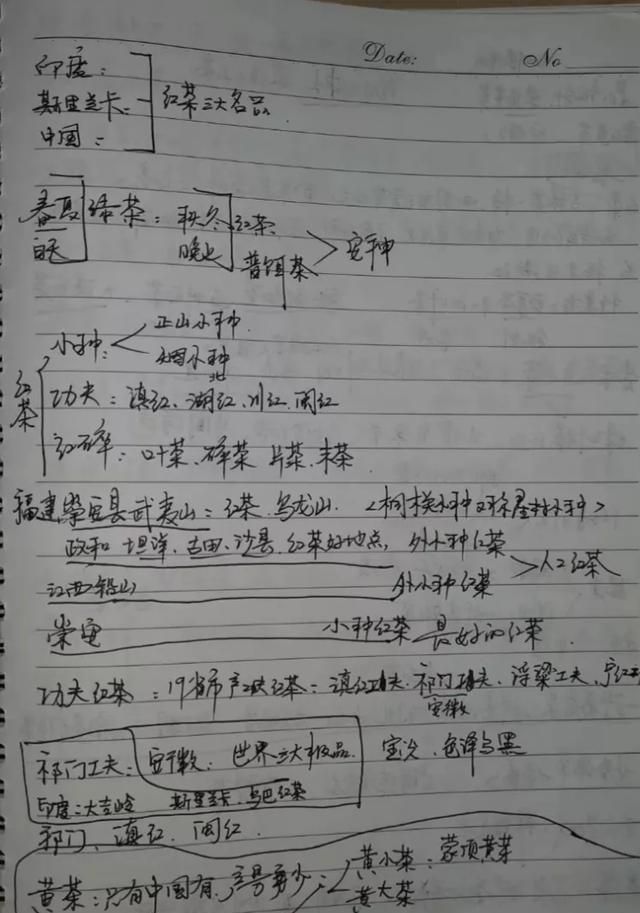 Date: No
印度:
斯里兰卡: 红茶三大名品
中国:
春夏 绿茶: 秋冬 红茶
白天 晚上 普洱茶 > 安神
小种: 正山小种
烟小种
红茶
功夫: 滇红、湖红、川红、闽红
红碎: 叶茶、碎茶 片茶、末茶
福建崇安县武夷山: 红茶、乌龙山
政和 坦洋、古田、沙县 红茶好地点, 外小种红茶
江西铅山 外小种红茶 > 人工红茶
崇安 小种红茶 最好的红茶
功夫红茶: 19省市产功夫红茶: 滇红功夫、祁门功夫、浮梁工夫、宁红
安徽
祁门工夫: 安徽: 世界三大极品 色泽乌黑
印度: 大吉岭 斯里兰卡、乌巴红茶
祁门、滇红、闽红
黄茶: 只有中国有, 黄小茶: 蒙顶黄茶
黄大茶